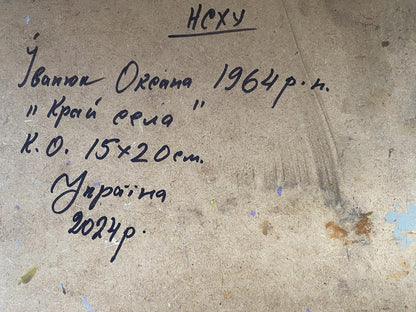 НСХУ
Іванюк Оксана 1964 р.н.
„Край села"
К.О. 15х20см.
Україна
2024р.